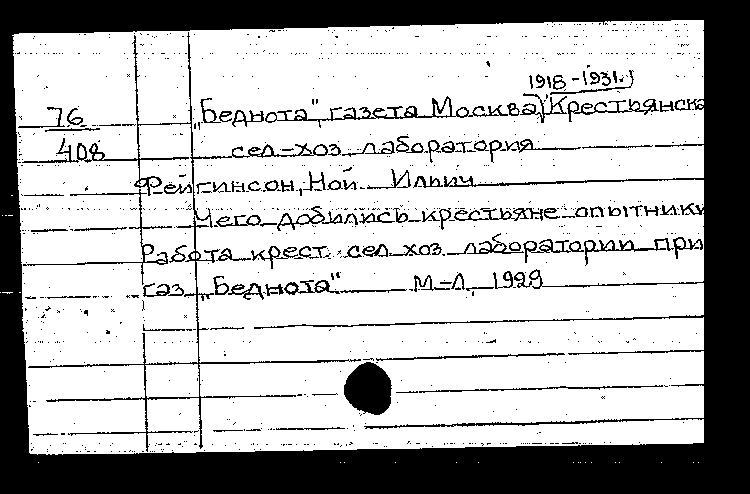 1918-1931.)
76 „Беднота", газета Москва) Крестьянска
408 сел-хоз. лаборатория
Фейгинсон, Ной Ильич
Чего добились крестьяне-опытники
Работа крест. сел хоз лаборатории при
газ „Беднота" М-Л, 1929